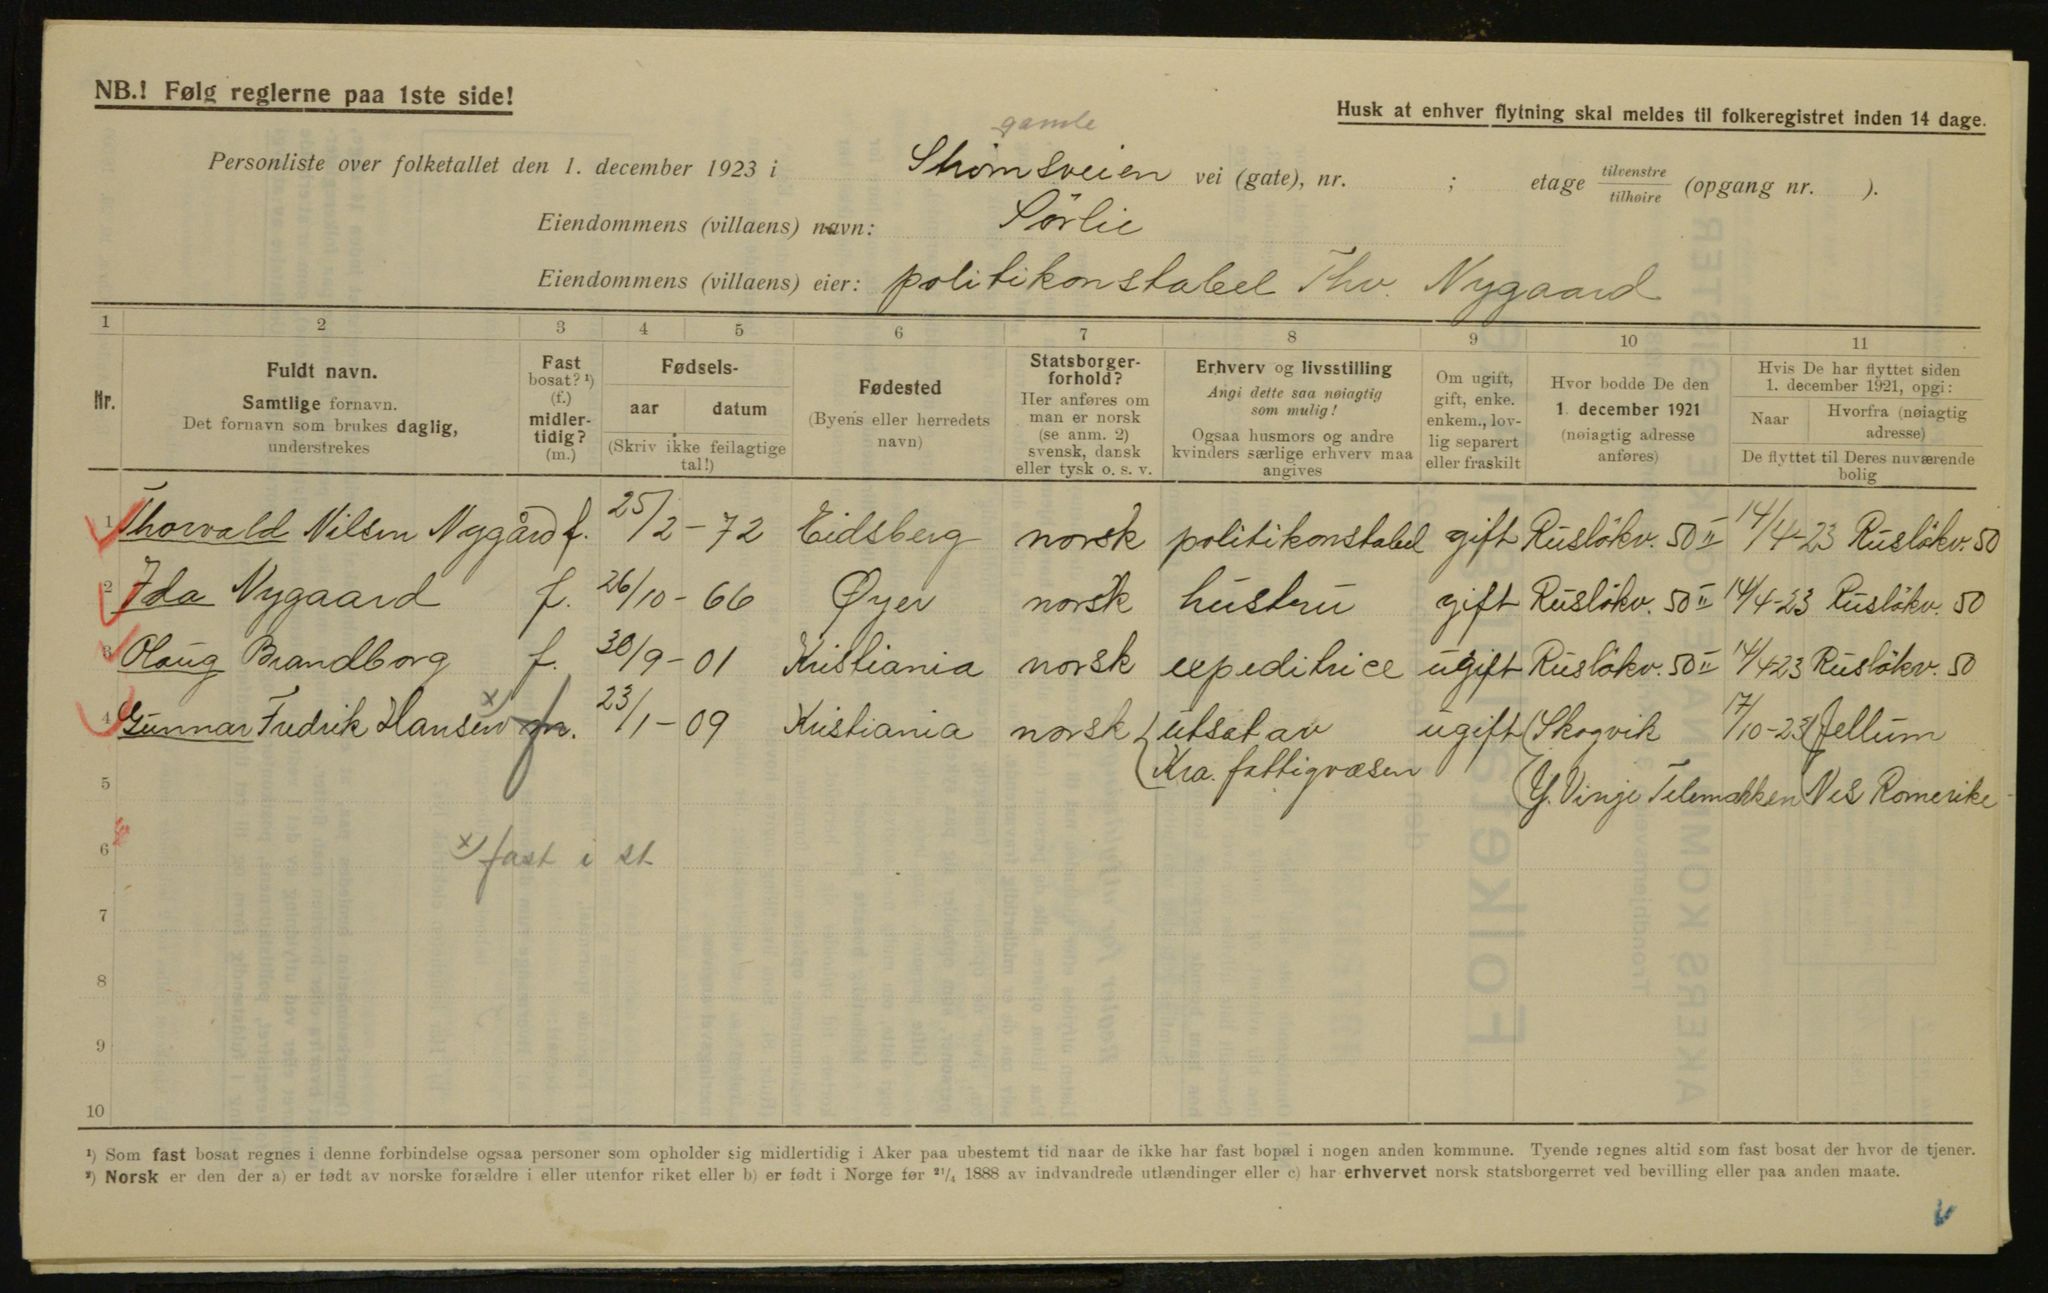 NB.! Følg reglerne paa 1ste side!
Husk at enhver flytning skal meldes til folkeregistret inden 14 dage.
gamle
Personliste over folketallet den 1. december 1923 i Strömsveien vei (gate), nr. ; etage tilvenstre tilhøire (opgang nr. ).
Eiendommens (villaens) navn: Sörlie
Eiendommens (villaens) eier: politikonstabel Thv. Nygaard
1 2 3 4 5 6 7 8 9 10 11
Nr.
Fuldt navn.
Samtlige fornavn.
Det fornavn som brukes daglig,
understrekes
Fast
bosat? ¹)
(f.)
midler-
tidig?
(m.)
Fødsels-
aar datum
(Skriv ikke feilagtige
tal!)
Fødested
(Byens eller herredets
navn)
Statsborger-
forhold?
Her anføres om
man er norsk
(se anm. 2)
svensk, dansk
eller tysk o. s. v.
Erhverv og livsstilling
Angi dette saa nøiagtig
som mulig!
Ogsaa husmors og andre
kvinders særlige erhverv maa
angives
Om ugift,
gift, enke.
enkem., lov-
lig separert
eller fraskilt
Hvor bodde De den
1. december 1921
(nøiagtig adresse
anføres)
Hvis De har flyttet siden
1. december 1921, opgi:
Naar
Hvorfra (nøiagtig
adresse)
De flyttet til Deres nuværende
bolig
1 Thorvald Nilsen Nygård f. 25/2-72 Eidsberg norsk politikonstabel gift Ruslökv. 50 II 14/4-23 Ruslökv. 50
2 Ida Nygaard f. 26/10-66 Øyer norsk hustru gift Ruslökv. 50 II 14/4-23 Ruslökv. 50
3 Olaug Brandborg f. 30/9-01 Kristiania norsk expeditrice ugift Ruslökv. 50 II 14/4-23 Ruslökv. 50
4 Gunnar Fredrik Hansen x) 23/1-09 Kristiania norsk utsat av ugift Skogvik 17/10-23 Jellum
Kra. fattigvæsen Y. Vinje Telemarken Nes Romerike
5
6 x) fast i st
7
8
9
10
¹) Som fast bosat regnes i denne forbindelse ogsaa personer som opholder sig midlertidig i Aker paa ubestemt tid naar de ikke har fast bopæl i nogen anden kommune. Tyende regnes altid som fast bosat der hvor de tjener.
²) Norsk er den der a) er født av norske forældre i eller utenfor riket eller b) er født i Norge før ²¹/₄ 1888 av indvandrede utlændinger eller c) har erhvervet norsk statsborgerret ved bevilling eller paa anden maate.